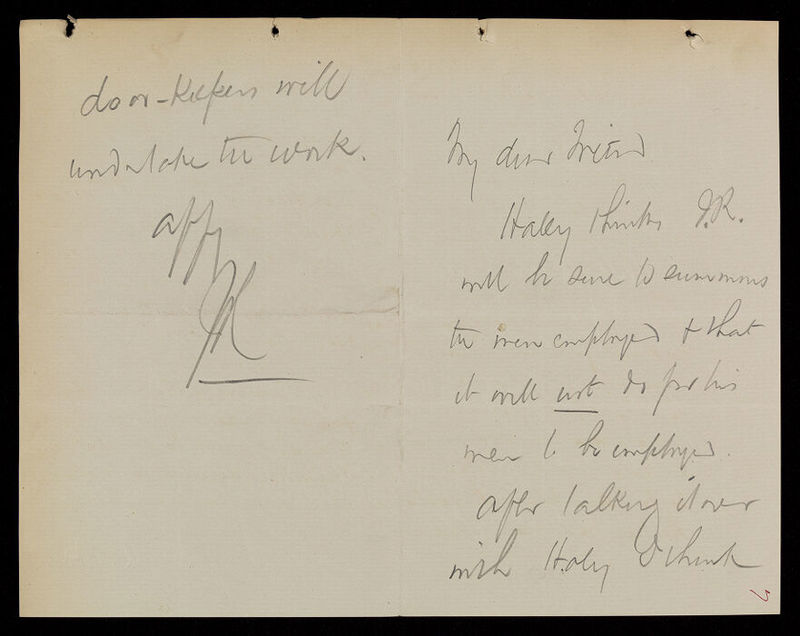 My dear Friend
Haley thinks J.R.
will be sure to summons
the men employed & that
it will not do for his
men to be employed.
After talking it over
with Haley I think
door-keepers will
undertake the work.
affy